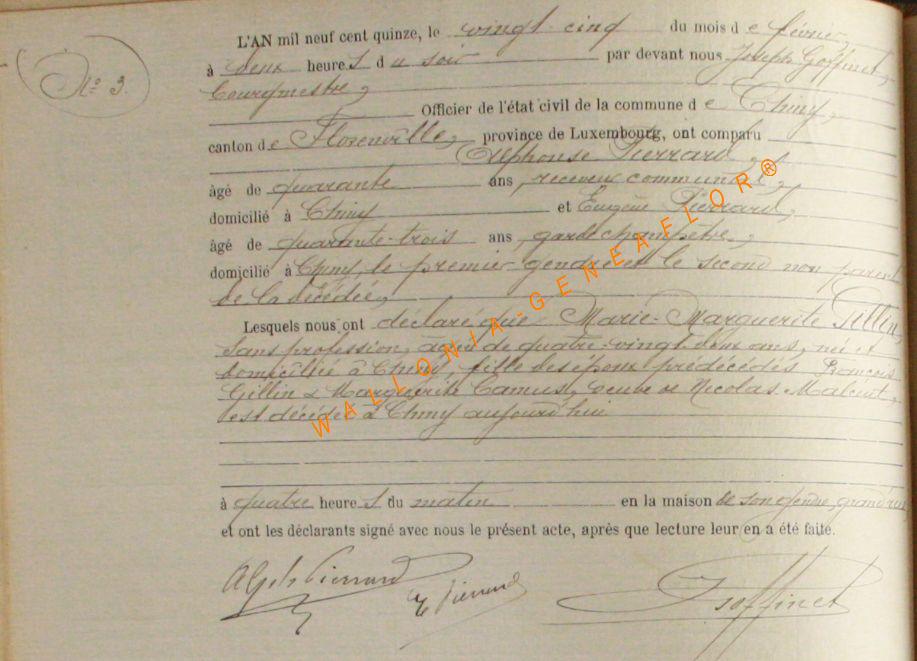 N° 3.
L'AN mil neuf cent quinze, le vingt-cinq du mois de février
à deux heures du soir par devant nous Joseph Goffinet,
bourgmestre,
Officier de l'état civil de la commune de Chiny,
canton de Florenville, province de Luxembourg, ont comparu
Alphonse Pierrard,
âgé de quarante ans, receveur communal,
domicilié à Chiny et Eugène Pierrard,
âgé de quarante-trois ans, garde champêtre,
domicilié à Chiny, le premier gendre et le second non parent
de la décédée,
Lesquels nous ont déclaré que Marie-Marguerite Gillin,
sans profession, âgée de quatre-vingt deux ans, née et
domiciliée à Chiny, fille des époux prédécédés François
Gillin & Marguerite Camus, veuve de Nicolas Malcuit,
est décédée à Chiny aujourd'hui
à quatre heures du matin en la maison de son gendre, grand'rue
et ont les déclarants signé avec nous le présent acte, après que lecture leur en a été faite.
Alph Pierrard E Pierrard J Goffinet
WALLONIA-GENEAFLOR®